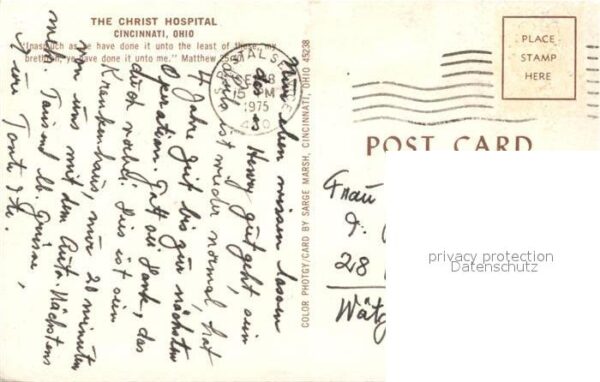 THE CHRIST HOSPITAL
CINCINNATI, OHIO
"Inasmuch as ye have done it unto the least of these my
brethren, ye have done it unto me." Matthew 25
wissen lassen
das es Henry gut geht, sein
ist wieder normal, hat
4 Jahre Zeit bis zur nächsten
Operation. Gott sei Dank, das
auch vorbei. Dies ist sein
Krankenhaus, nur 20 minuten
von uns mit dem Auto. Nächstens
mehr. Tausend lb. Grüsse,
Eure Tante
POSTAL
1975
COLOR PHOTGY/CARD BY SARGE MARSH, CINCINNATI, OHIO 45238
PLACE
STAMP
HERE
POST CARD
Frau
28
privacy protection
Datenschutz